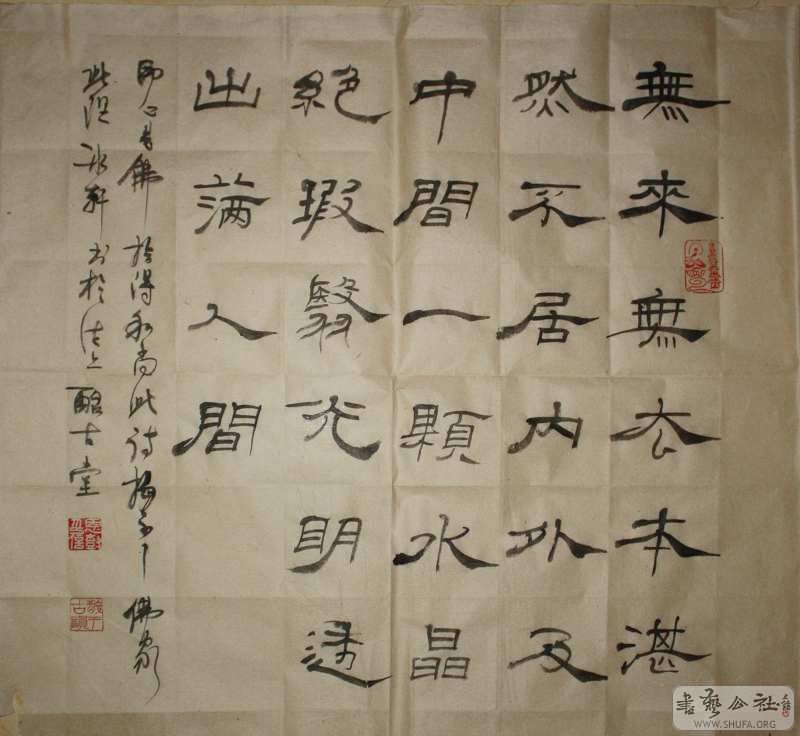 無來無去本湛
然不居內外及
中間一顆水晶
絕瑕翳光明透
出滿人間
即心是佛 拾得和尚此詩揭示了佛家
此 軒 书於 上 古堂
書藝公社
WWW.SHUFA.ORG